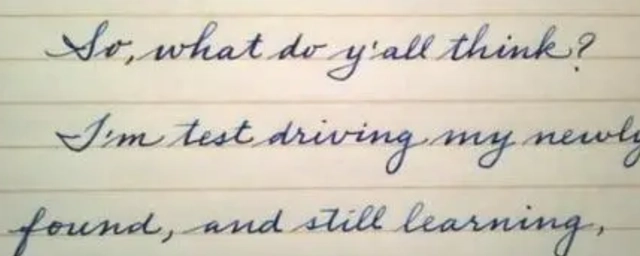 So, what do y'all think?
I'm test driving my newly
found, and still learning,